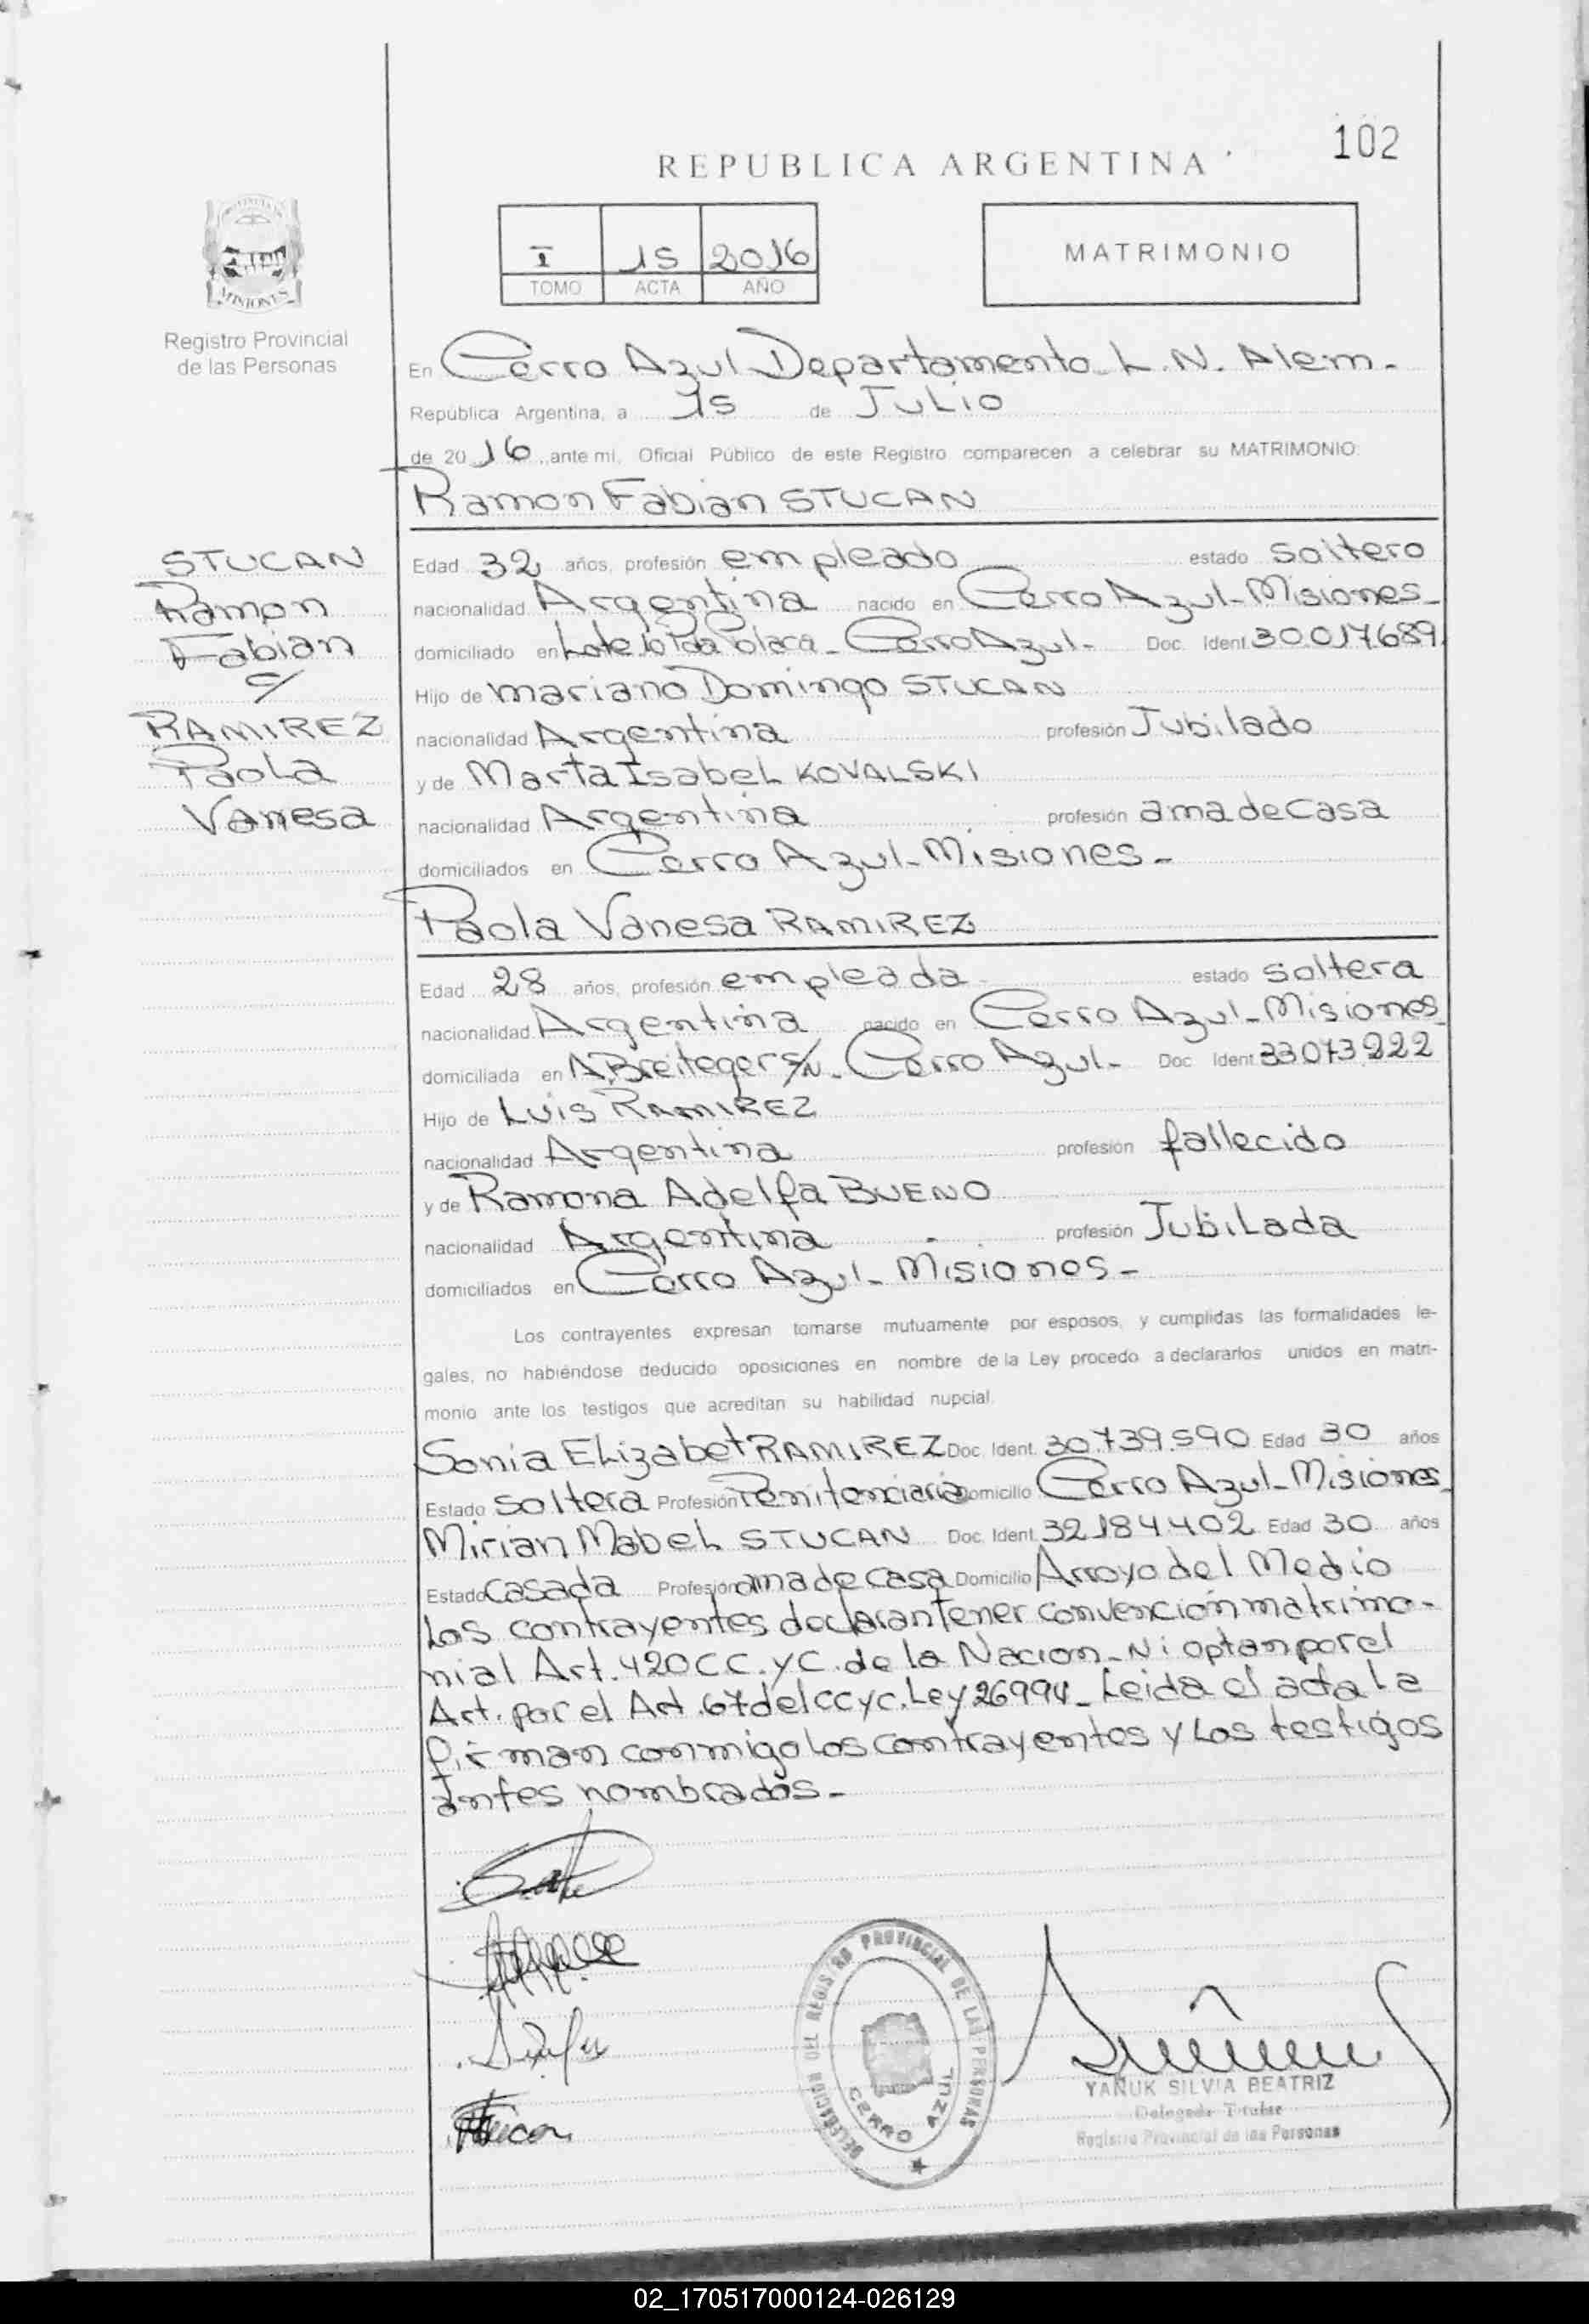 102
REPUBLICA ARGENTINA
PROVINCIA DE
MISIONES
Registro Provincial
de las Personas
I 15 2016
TOMO ACTA AÑO
MATRIMONIO
En Cerro Azul Departamento L.N. Alem.
Republica Argentina, a 15 de Julio
de 2016, ante mi, Oficial Público de este Registro comparecen a celebrar su MATRIMONIO:
Ramon Fabian STUCAN
STUCAN
Ramon
Fabian
c/
RAMIREZ
Paola
Vanesa
Edad 32 años, profesión empleado estado soltero
nacionalidad Argentina nacido en Cerro Azul-Misiones-
domiciliado en Lote 10 Pda Placa - Cerro Azul- Doc. Ident. 30.017.689
Hijo de Mariano Domingo STUCAN
nacionalidad Argentina profesión Jubilado
y de Marta Isabel KOVALSKI
nacionalidad Argentina profesión ama de casa
domiciliados en Cerro Azul-Misiones-
Paola Vanesa RAMIREZ
Edad 28 años, profesión empleada - estado soltera
nacionalidad Argentina nacido en Cerro Azul-Misiones-
domiciliada en S/N- Cerro Azul- Doc. Ident. 33.073.222
Hijo de Luis RAMIREZ
nacionalidad Argentina profesión fallecido
y de Ramona Adelfa BUENO
nacionalidad Argentina profesión Jubilada
domiciliados en Cerro Azul-Misiones-
Los contrayentes expresan tomarse mutuamente por esposos, y cumplidas las formalidades le-
gales, no habiéndose deducido oposiciones en nombre de la Ley procedo a declararlos unidos en matri-
monio ante los testigos que acreditan su habilidad nupcial.
Sonia Elizabet RAMIREZ Doc. Ident. 30.739.590 Edad 30 años
Estado soltera Profesión Penitenciaria Domicilio Cerro Azul-Misiones-
Mirian Mabel STUCAN Doc. Ident. 32.184.402 Edad 30 años
Estado casada Profesión ama de casa Domicilio Arroyo del Medio
Los contrayentes declaran tener convención matrimo-
nial Art. 420 C.C.yC. de la Nacion-Ni optan por el
Art. por el Art. 67 del CCyC. Ley 26994- Leida el acta la
firman conmigo los contrayentes y los testigos
antes nombrados-
DELEGACION DEL REGISTRO PROVINCIAL DE LAS PERSONAS
CERRO AZUL
YAÑUK SILVIA BEATRIZ
Delegada Titular
Registro Provincial de las Personas
02_170517000124-026129